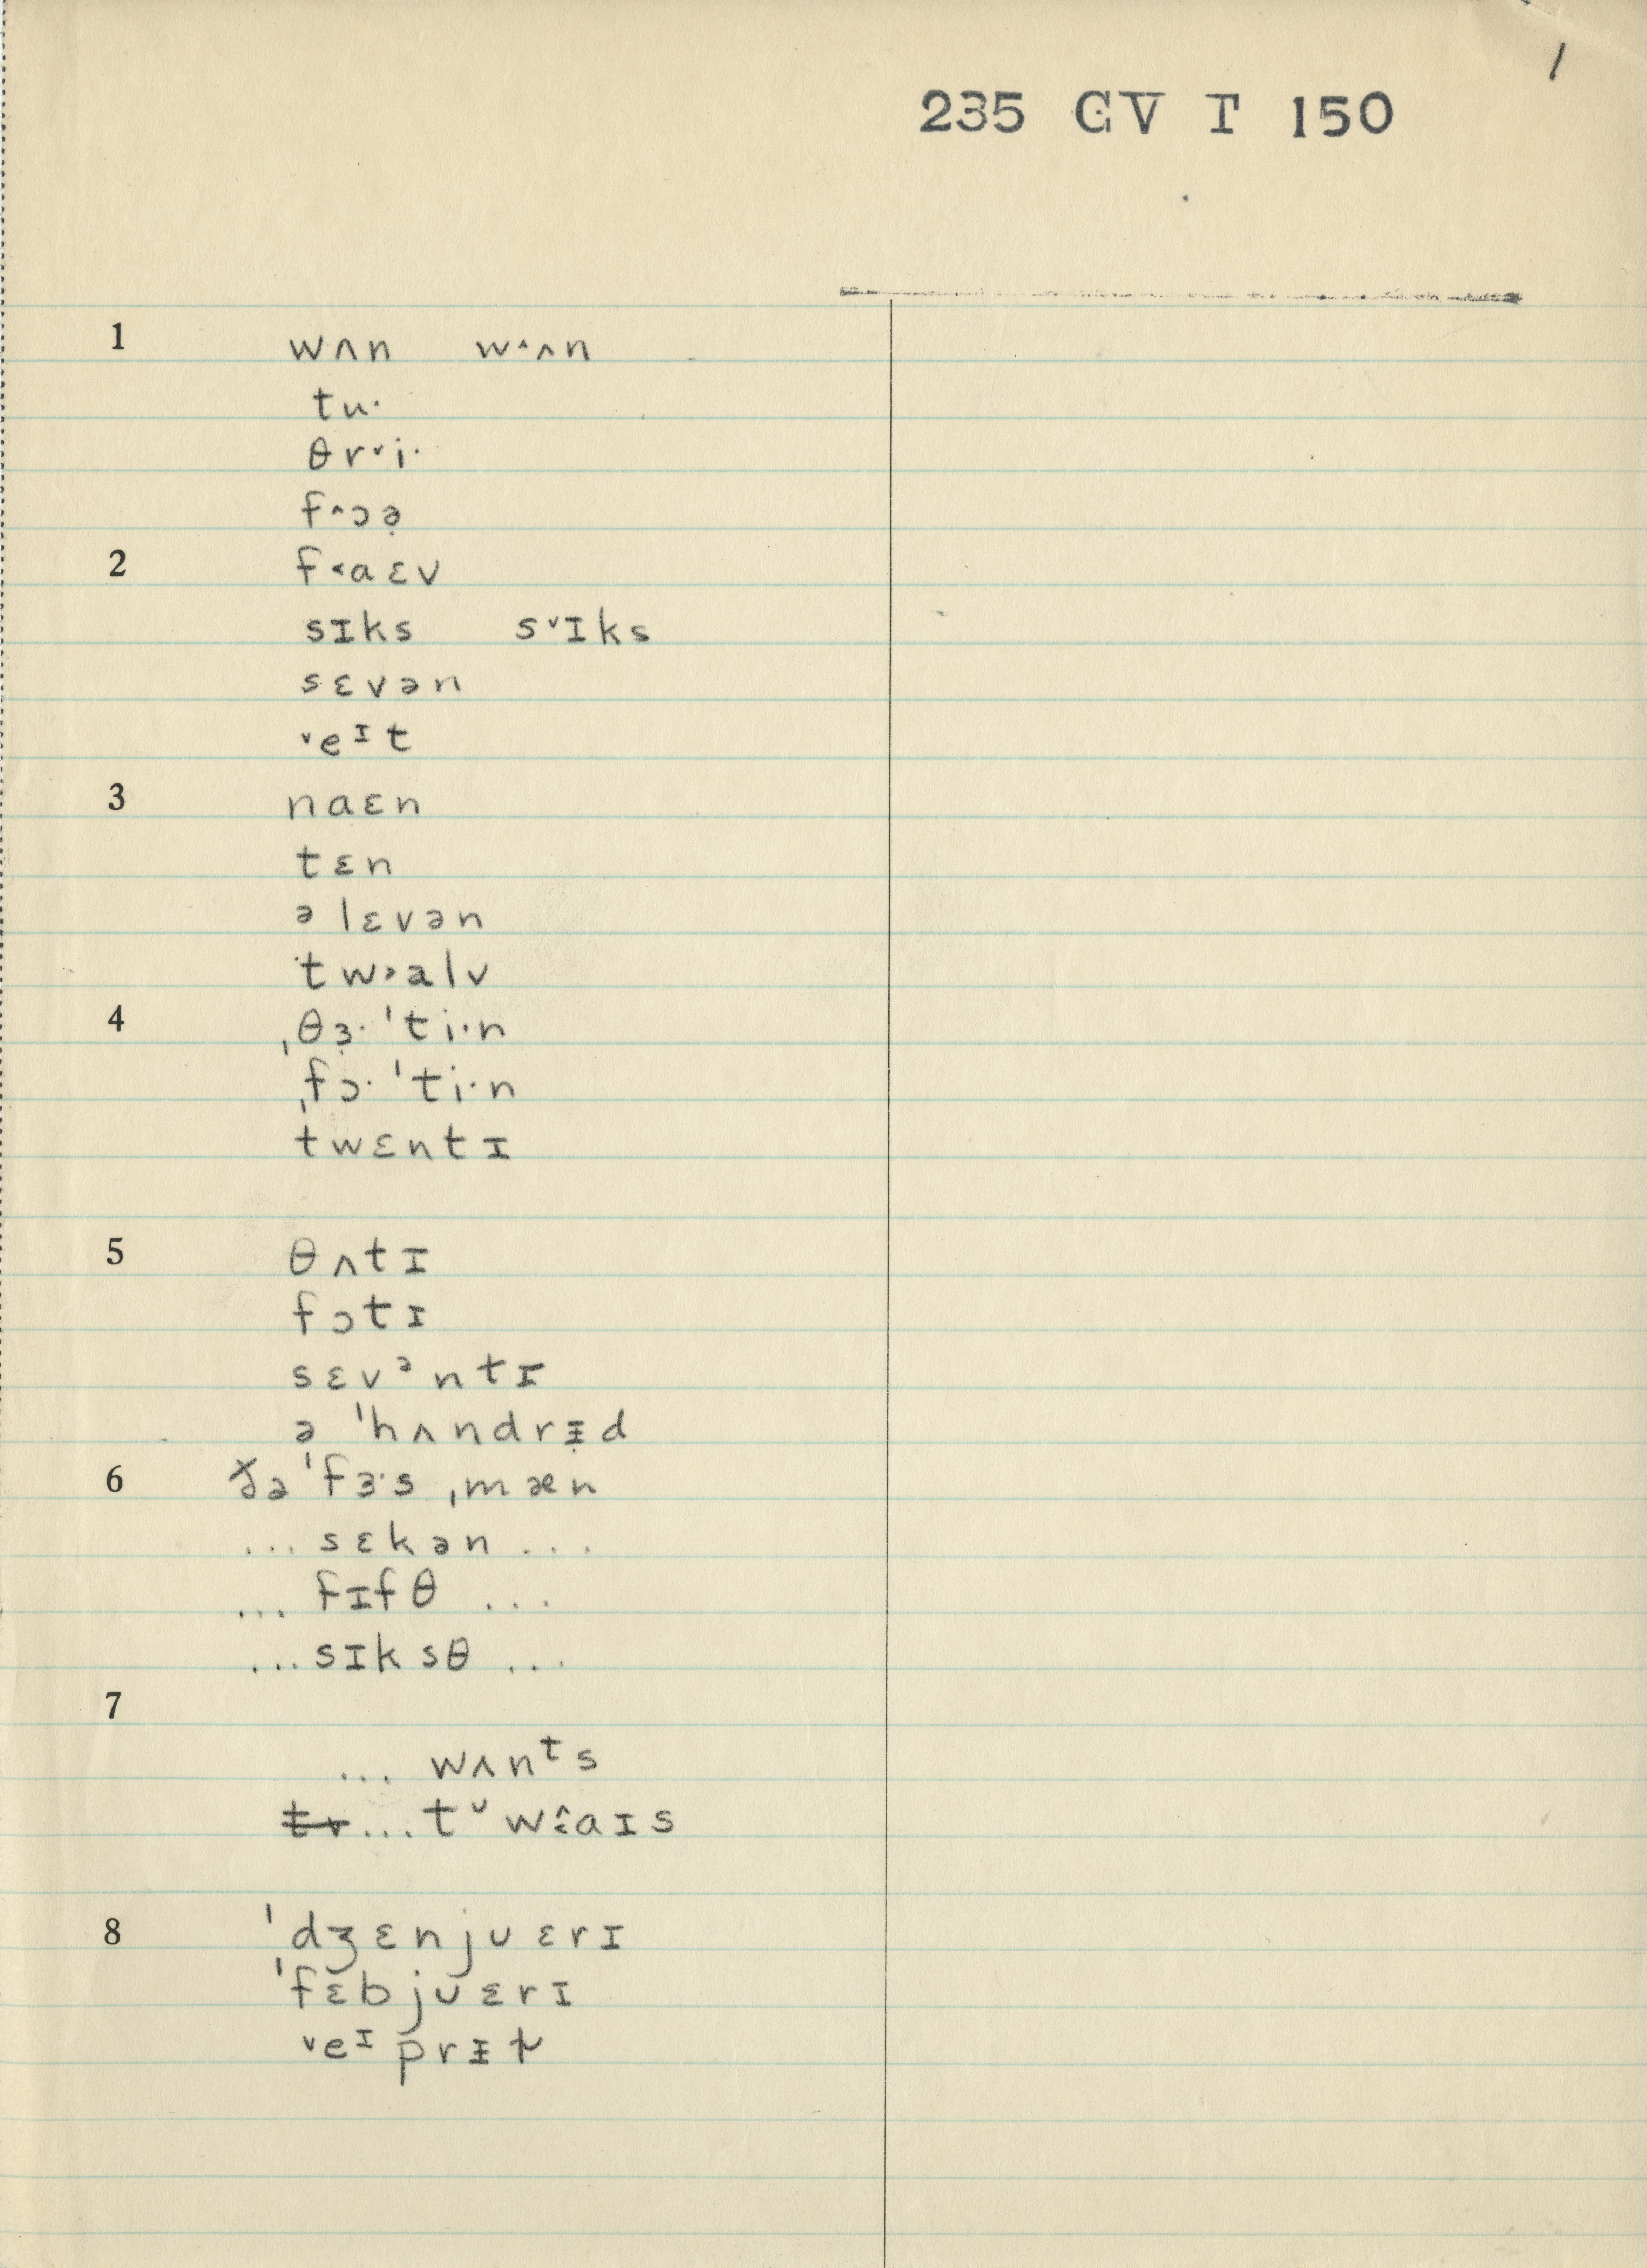 1
235 GV T 150
1 wʌn w˄ʌn
tu·
θr˅i·
f˄ɔə̣
2 f˂aɛv
sɪks s˅ɪks
sɛvən
˅eᶦt
3 naɛn
tɛn
əlɛvən
tw˃alv
4 ˌθɜ̣·ˈti·n
ˌfɔ·ˈti·n
twɛntɪ
5 θʌtɪ
fɔtɪ
sɛvᵊntɪ
ə ˈhʌndrɪ̵d
6 ðə ˈfɜ·s ˌmæn
... sɛkən ...
... fɪfθ ...
... sɪksθ ...
7
... wʌnᵗs
... tᶷ w˂̂aɪs
8 ˈdʒɛnjʊɛrɪ
ˈfɛbjʊɛrɪ
˅eᶦprɪ̵ɫ